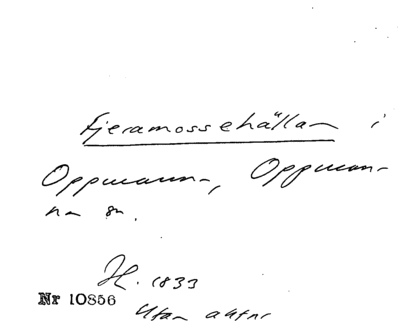 Fjeramossehällan i
Oppmanna, Oppman-
na sn.
H. 1833
Nr 10856
Utan aktnr